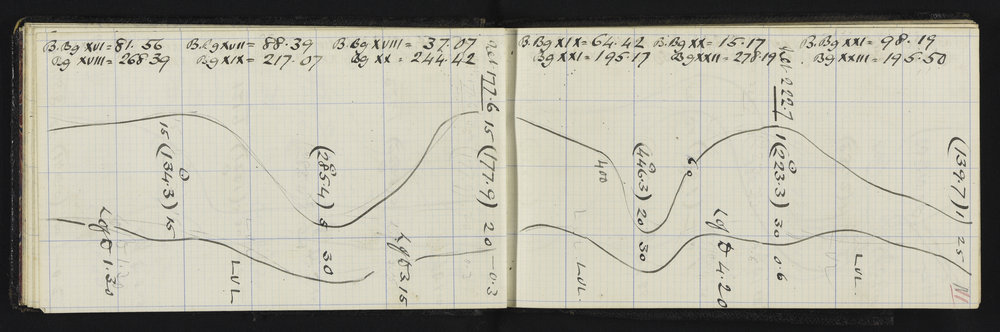 B.Bg XVI = 81.56 B.Bg XVII = 88.39 B.Bg XVIII = 37.07
Bg XVIII = 268.39 Bg XIX = 217.07 Bg XX = 244.42
B.Bg XIX = 64.42 B.Bg XX = 15.17 B.Bg XXI = 98.19
Bg XXI = 195.17 Bg XXII = 278.19 Bg XXIII = 195.50
15 (134.3) 15
(285.4) 8 30
177.6 15 (177.9) 20 -0.3
400
(446.3) 20) 30
60
222.7 1 (223.3) 30 0.6
(139.7) 1 25
1.30
LVL
3.15
LVL.
4.20
LVL.